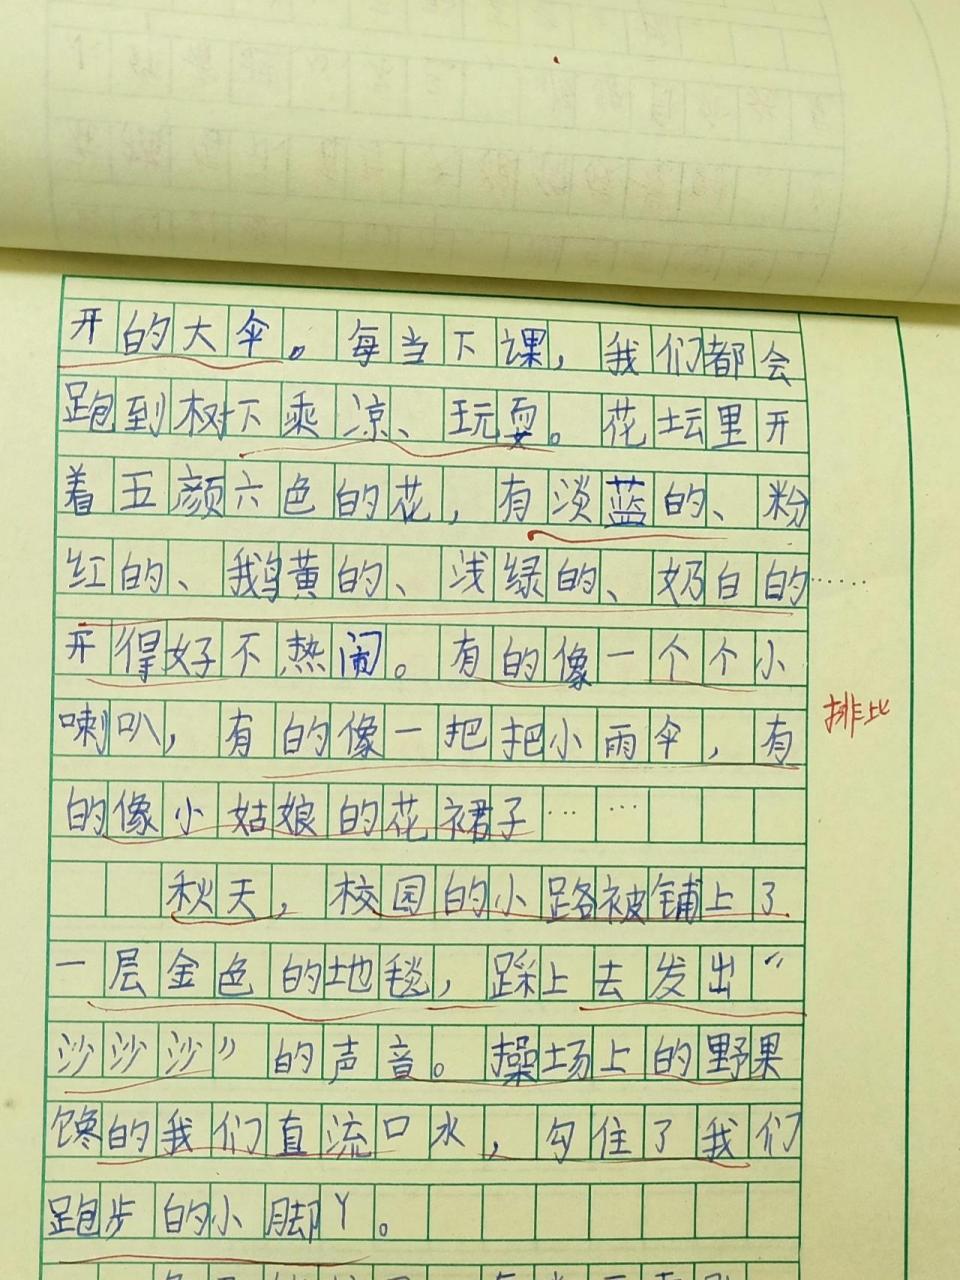 开的大伞。每当下课，我们都会
跑到树下乘凉、玩耍。花坛里开
着五颜六色的花，有淡蓝的、粉
红的、鹅黄的、浅绿的、奶白的……
开得好不热闹。有的像一个个小
喇叭，有的像一把把小雨伞，有
排比
的像小姑娘的花裙子……
秋天，校园的小路被铺上了
一层金色的地毯，踩上去发出“
沙沙沙”的声音。操场上的野果
馋的我们直流口水，勾住了我们
跑步的小脚丫。